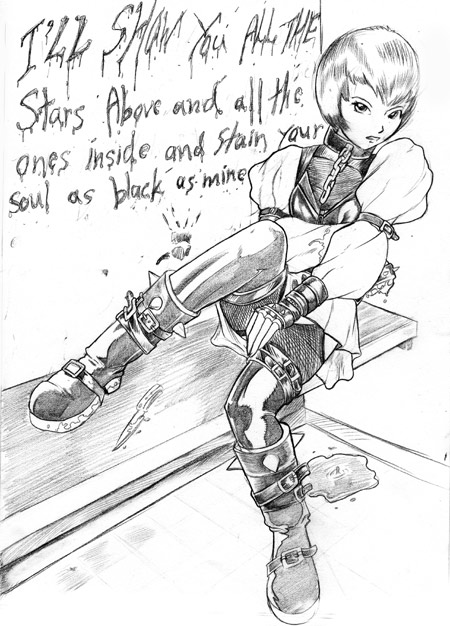 I'LL SHOW You All THE
Stars Above and all the
ones inside and stain your
soul as black as mine